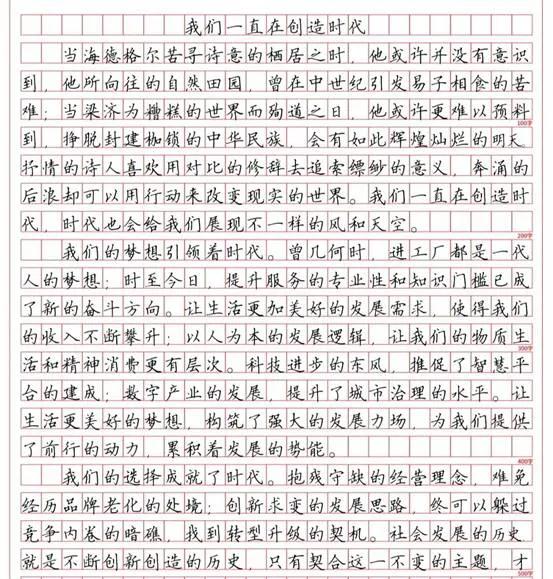 我们一直在创造时代
当海德格尔苦寻诗意的栖居之时，他或许并没有意识
到，他所向往的自然田园，曾在中世纪引发易子相食的苦
难；当梁济为糟糕的世界而殉道之日，他或许更难以预料
100字
到，挣脱封建枷锁的中华民族，会有如此辉煌灿烂的明天。
抒情的诗人喜欢用对比的修辞去追索缥缈的意义，奔涌的
后浪却可以用行动来改变现实的世界。我们一直在创造时
代，时代也会给我们展现不一样的风和天空。
200字
我们的梦想引领着时代。曾几何时，进工厂都是一代
人的梦想；时至今日，提升服务的专业性和知识门槛已成
了新的奋斗方向。让生活更加美好的发展需求，使得我们
的收入不断攀升；以人为本的发展逻辑，让我们的物质生
300字
活和精神消费更有层次。科技进步的东风，推促了智慧平
台的建成；数字产业的发展，提升了城市治理的水平。让
生活更美好的梦想，构筑了强大的发展力场，为我们提供
了前行的动力，累积着发展的势能。
400字
我们的选择成就了时代。抱残守缺的经营理念，难免
经历品牌老化的处境；创新求变的发展思路，终可以躲过
竞争内卷的暗礁，找到转型升级的契机。社会发展的历史
就是不断创新创造的历史，只有契合这一不变的主题，才
500字